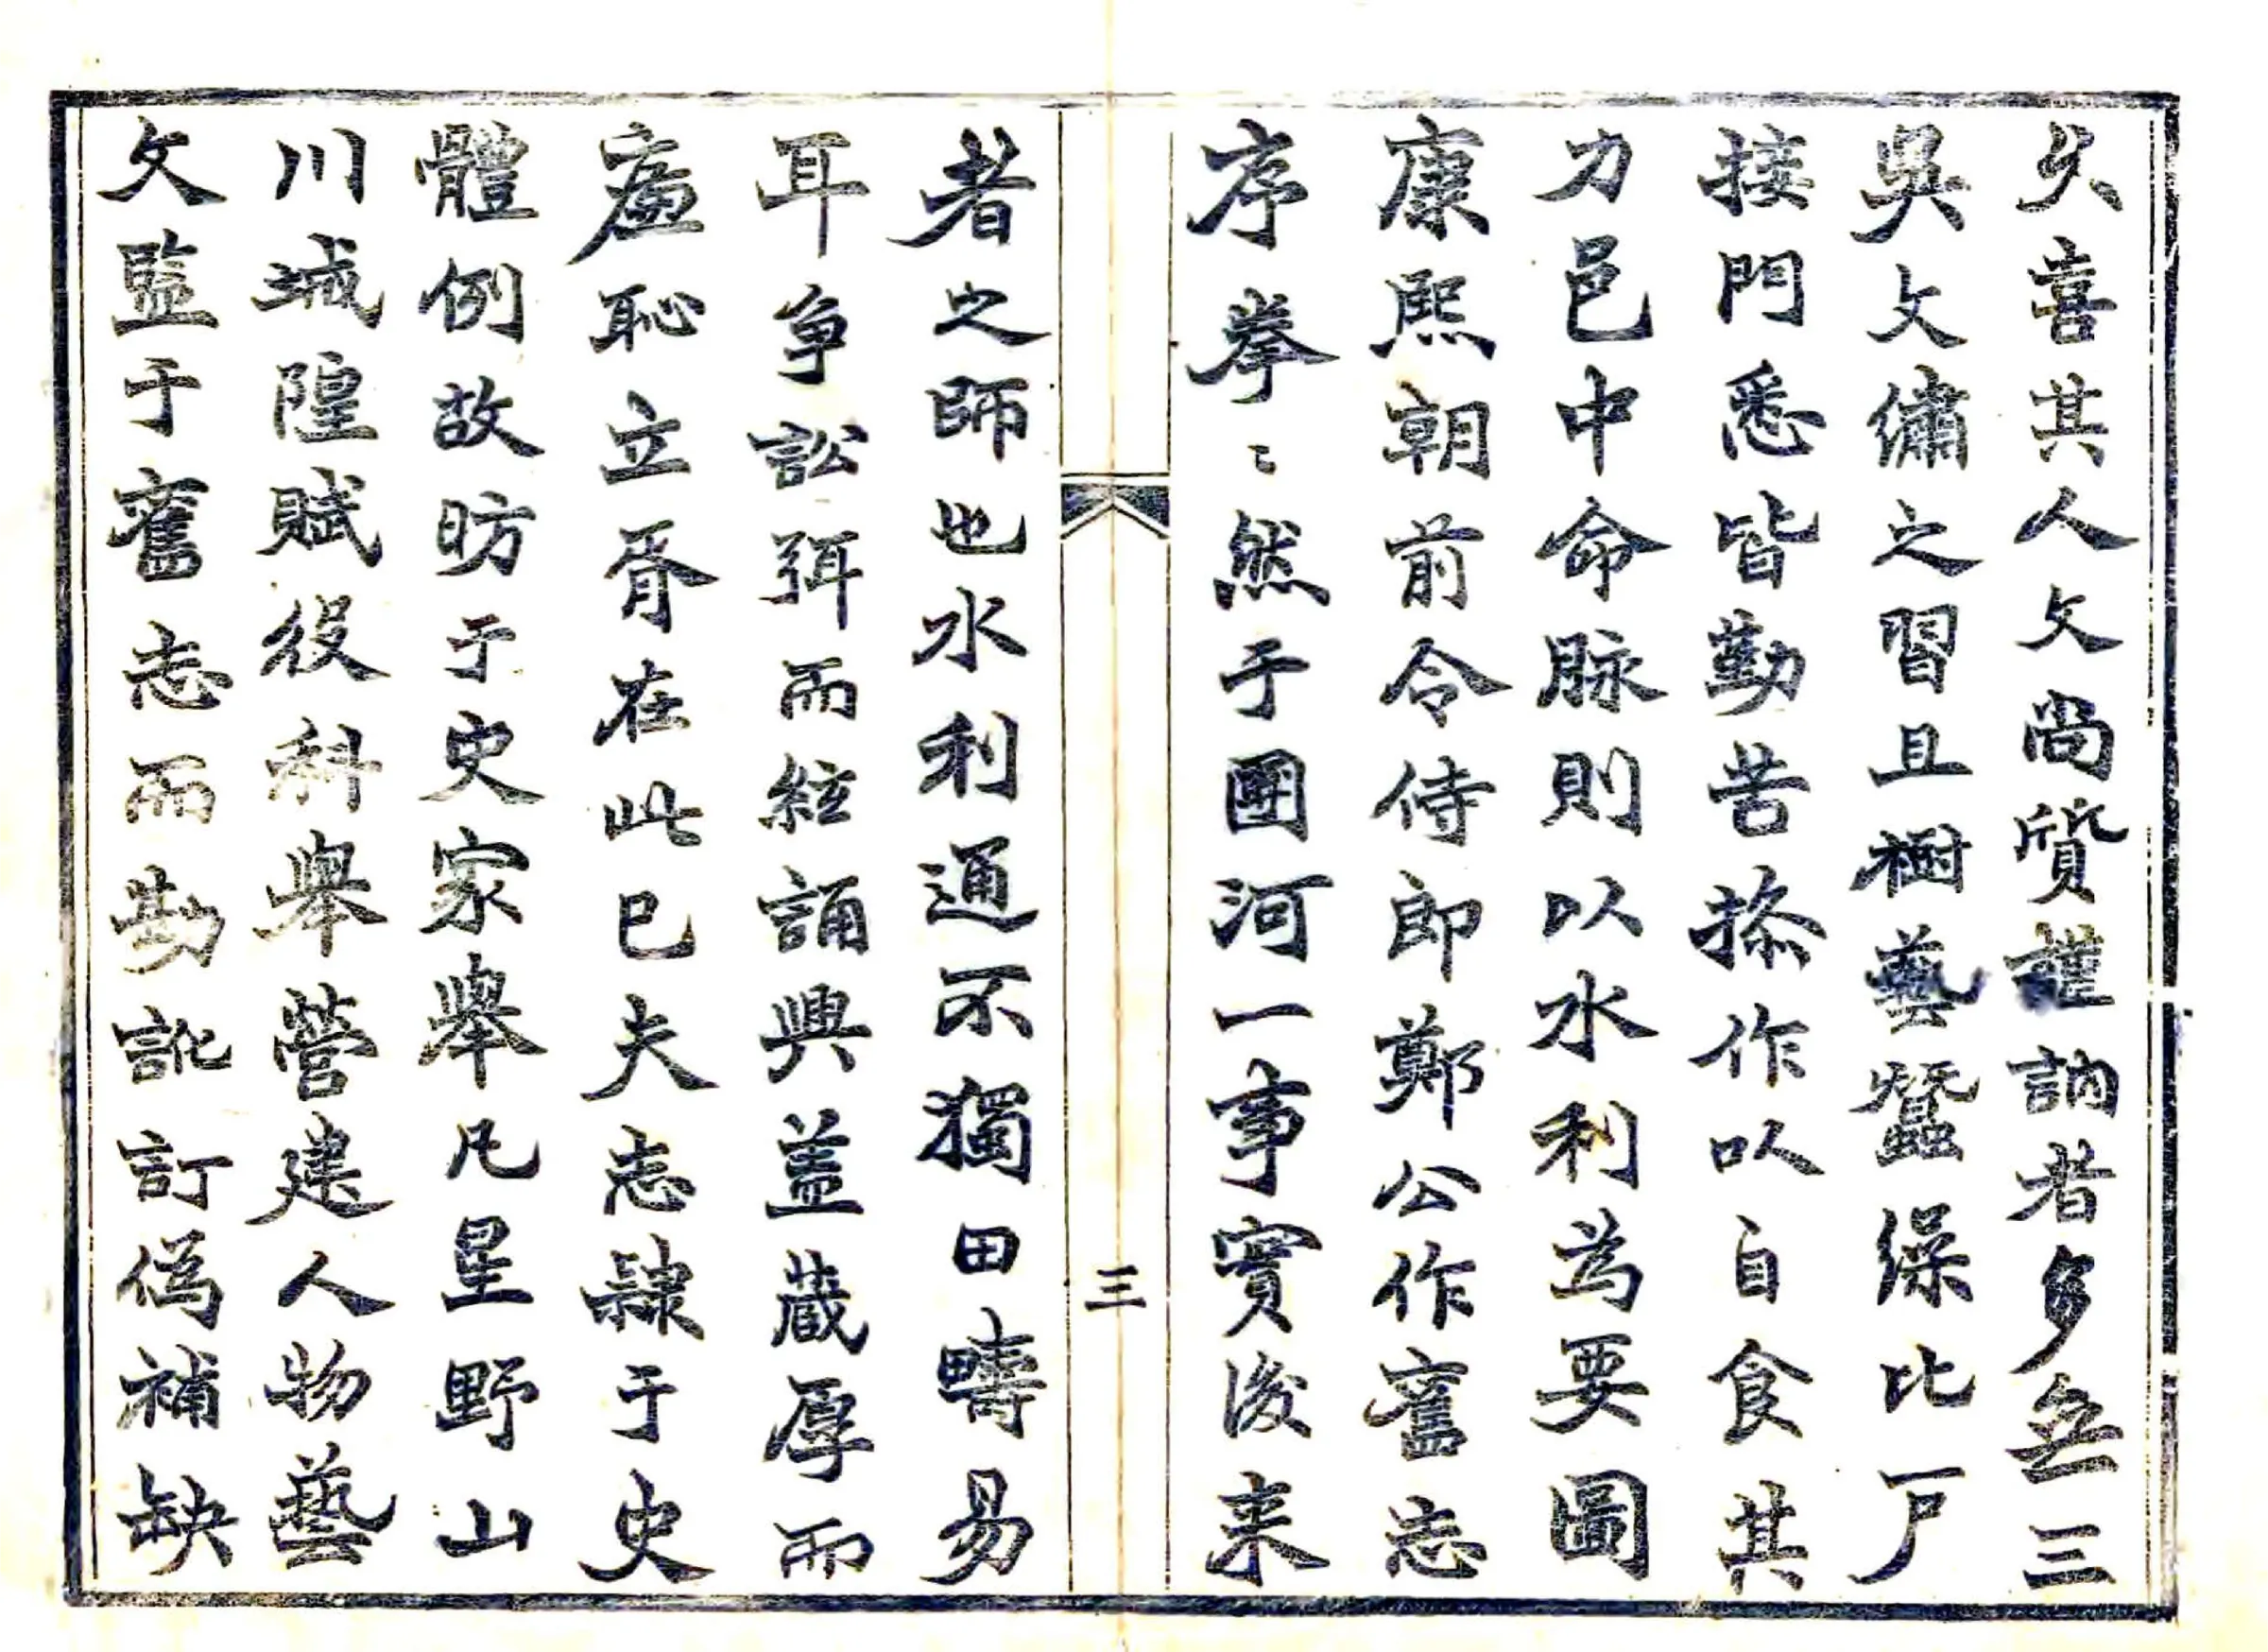 久喜其人文尚質謹訥者多無三
吳文繡之習且樹藝蠶繰比戸
接門悉皆勤苦操作以自食其
力邑中命脉則以水利為要圖
康熙朝前令侍郎鄭公作舊志
序拳〻然于圍河一事實後来
者之師也水利通不獨田疇易
耳争訟弭而絃誦興蓋蔵厚而
廉恥立胥在此已夫志隷于史
體例故昉于史家舉凡星野山
川城隍賦役科舉營建人物藝
文監于舊志而勘訛訂偽補缺
三